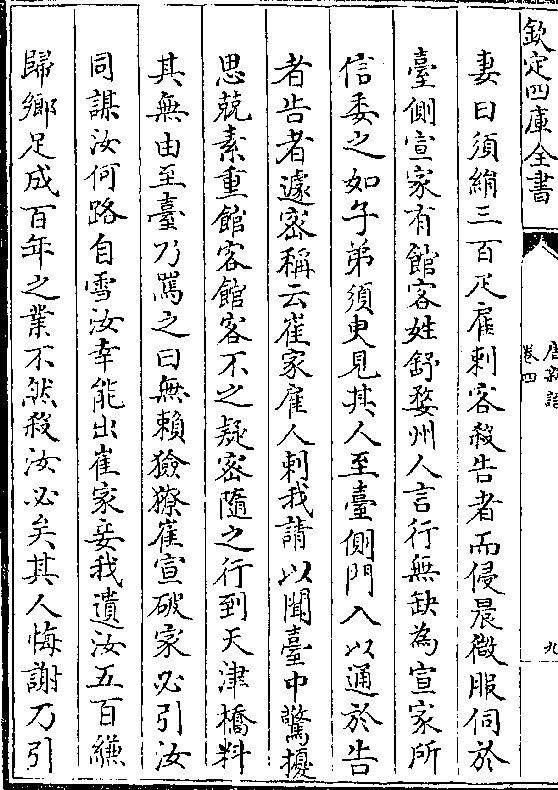 欽定四庫全書
唐新語
卷四
九
妻曰須絹三百疋雇刺客殺告者而侵晨微服伺於
臺側宣家有館客姓舒婺州人言行無缺為宣家所
信委之如子弟須臾見其人至臺側門入以通於告
者告者遽密稱云崔家雇人刺我請以聞臺中驚擾
思兢素重館客館客不之疑密隨之行到天津橋料
其無由至臺乃罵之曰無賴獫獠崔宣破家必引汝
同謀汝何路自雪汝幸能出崔家妾我遺汝五百縑
歸鄉足成百年之業不然殺汝必矣其人悔謝乃引